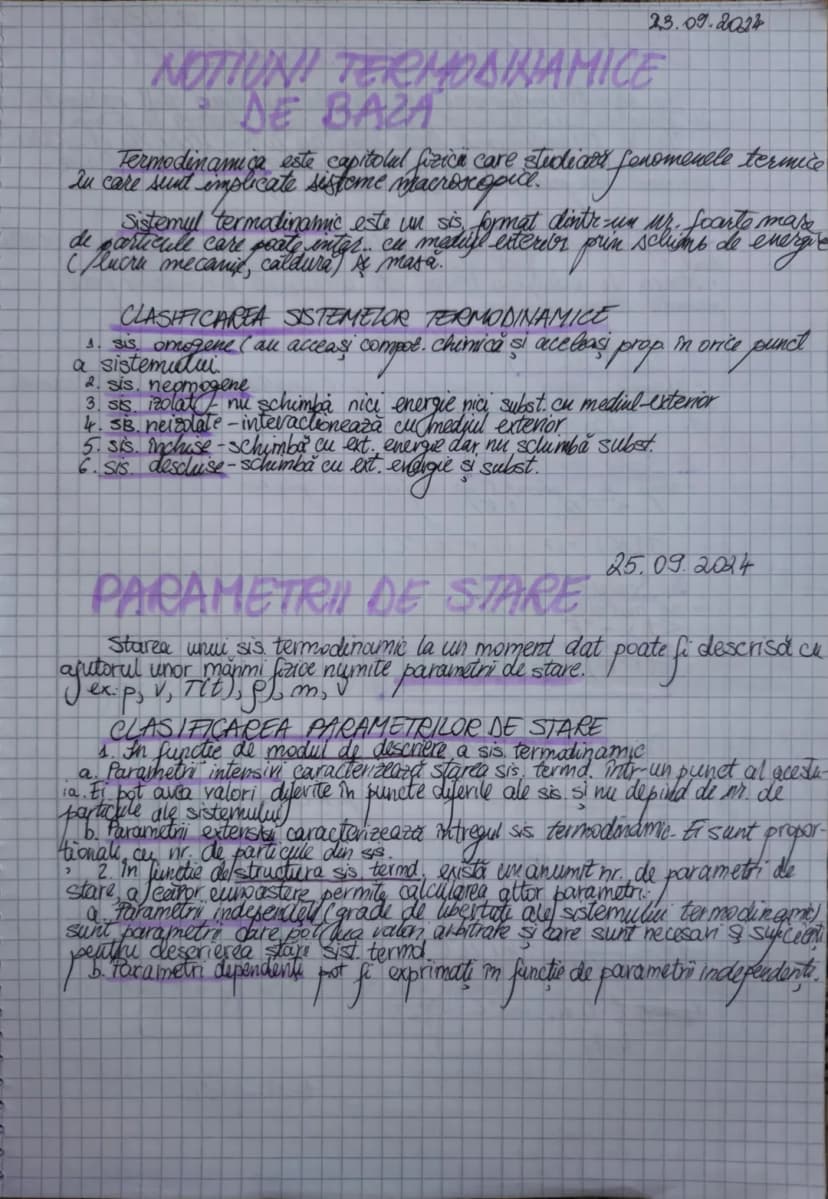 23.09.2024
NOȚIUNI TERMODINAMICE
DE BAZĂ
Termodinamica este capitolul fizicii care studiază fenomenele termice
în care sunt implicate sisteme macroscopice.
Sistemul termodinamic este un sis. format dintr-un nr. foarte mare
de particule care poate inter. cu mediul exterior prin schimb de energie
(lucru mecanic, căldură) și masă.
CLASIFICAREA SISTEMELOR TERMODINAMICE
1. sis. omogene (au aceeași compoz. chimică și aceleași prop. în orice punct
a sistemului.
2. sis. neomogene
3. sis. izolat - nu schimbă nici energie nici subst. cu mediul exterior
4. sis. neizolate - interacționează cu mediul exterior
5. sis. închise - schimbă cu ext. energie dar nu schimbă subst.
6. sis. deschise - schimbă cu ext. energie și subst.
25.09.2024
PARAMETRII DE STARE
Starea unui sis. termodinamic la un moment dat poate fi descrisă cu
ajutorul unor mărimi fizice numite parametri de stare.
ex: p, V, T(t), ρ, m, ν
CLASIFICAREA PARAMETRILOR DE STARE
1. În funcție de modul de descriere a sis. termodinamic
a. Parametrii intensivi caracterizează starea sis. termd. într-un punct al acestu-
ia. Ei pot avea valori diferite în puncte diferite ale sis. și nu depind de nr. de
particule ale sistemului
b. Parametrii extensivi caracterizează întregul sis. termodinamic. Ei sunt propor-
ționali cu nr. de particule din sis.
2. În funcție de structura sis. termd. există un anumit nr. de parametri de
stare a căror cunoaștere permite calcularea altor parametri.
a. Parametrii independenți (grade de libertate ale sistemului termodinamic)
sunt parametrii care pot lua valori arbitrare și care sunt necesari și suficienți
pentru descrierea stării sist. termd.
b. Parametri dependenți pot fi exprimați în funcție de parametrii independenți.